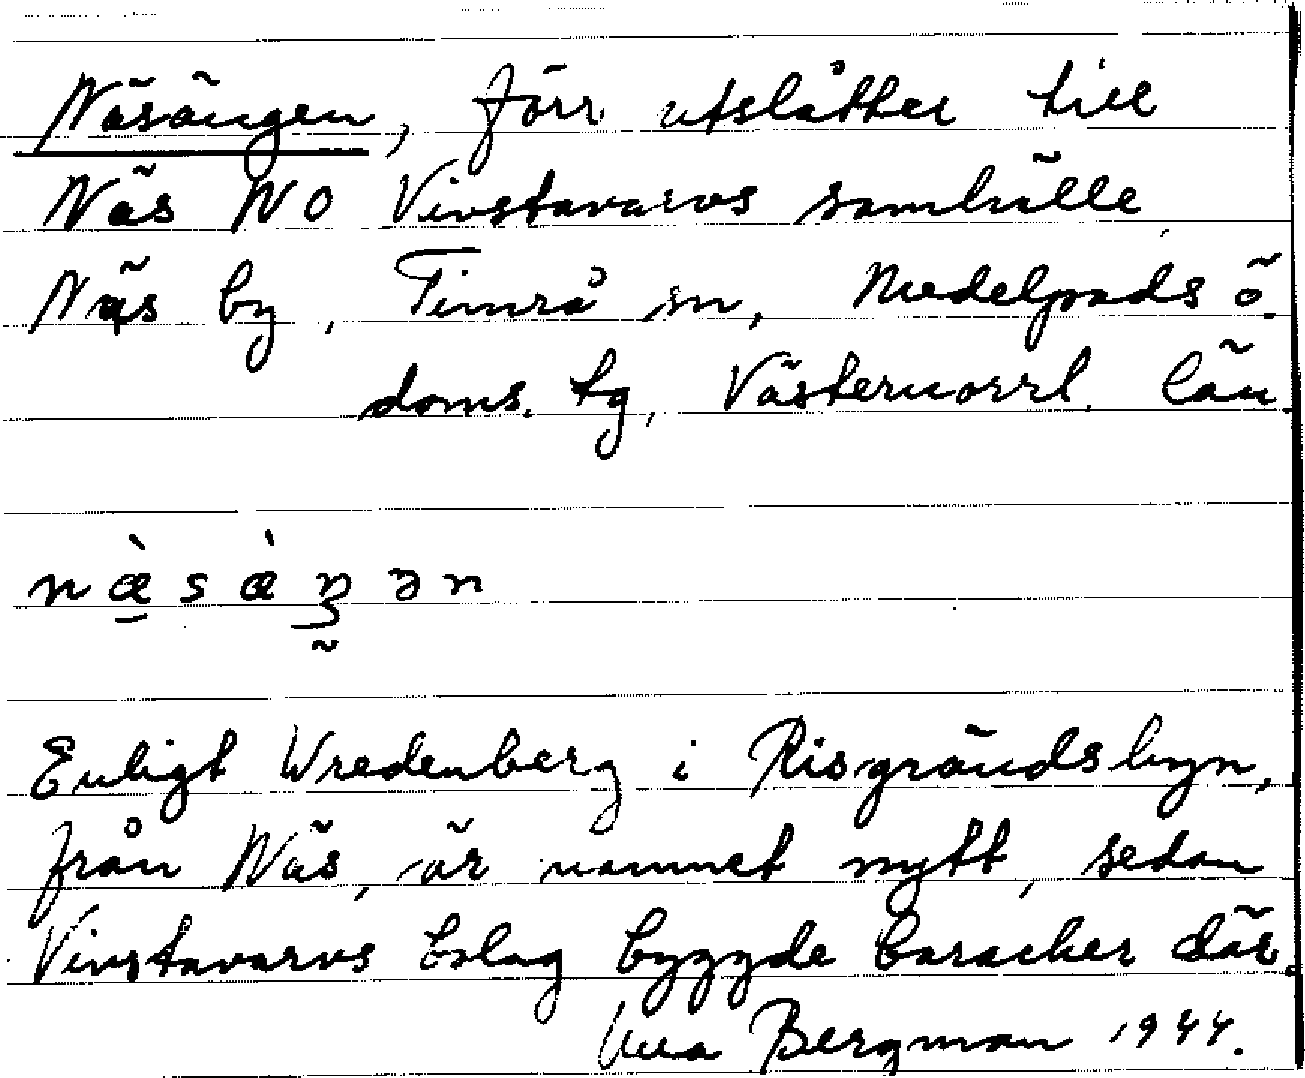 Näsängen, förr utslåtter till
Näs NO Vivstavarvs samhälle
Näs by, Timrå sn, Medelpads ö.
doms. tg, Västernorrl. län.
næ̀sæ̀ŋən
Enligt Wredenberg i Risgrändsbyn,
från Näs, är namnet nytt, sedan
Vivstavarvs bolag byggde baracker där.
Bergman 1944.